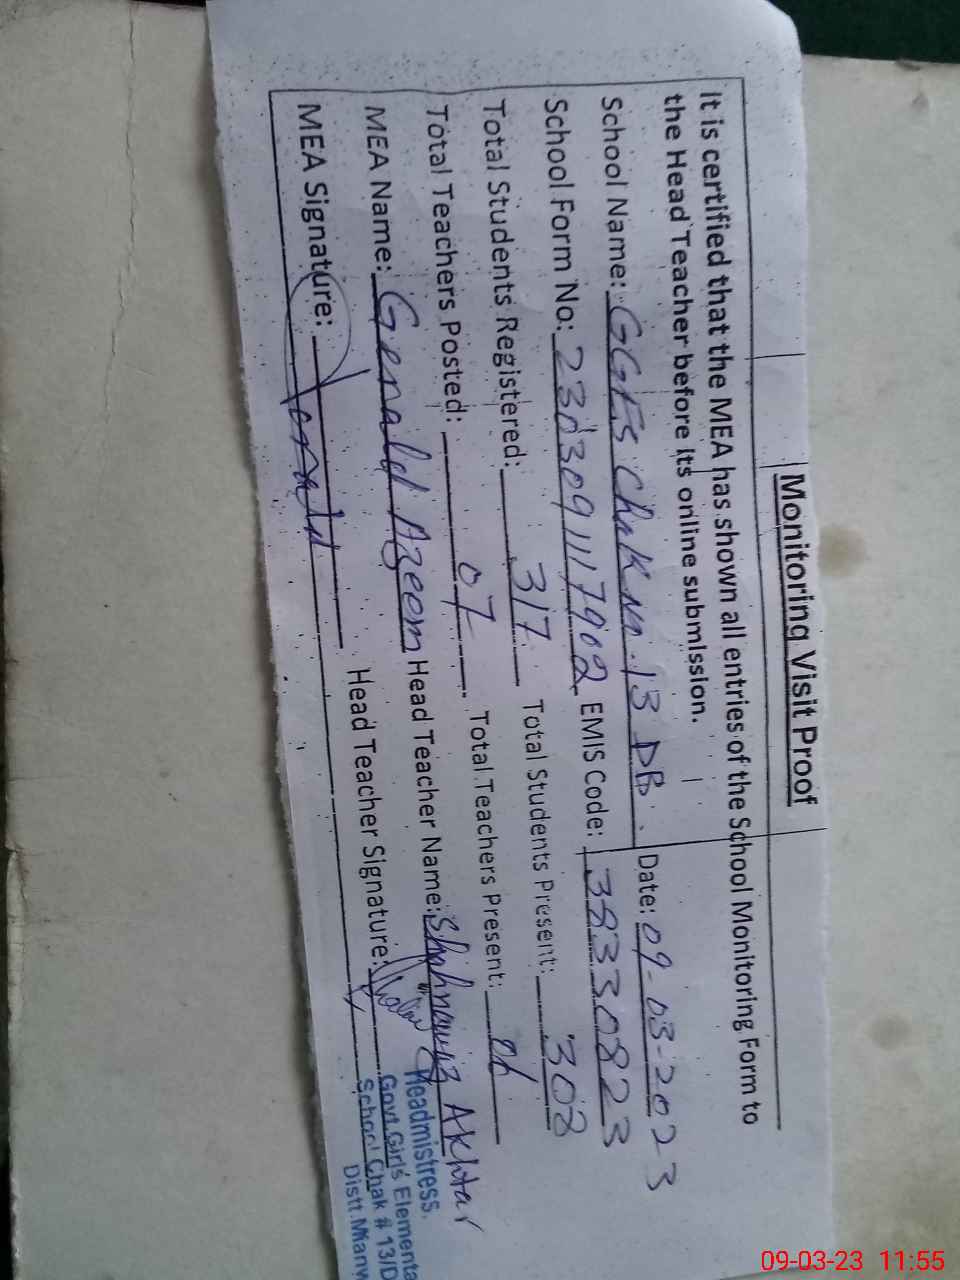 Monitoring Visit Proof
It is certified that the MEA has shown all entries of the School Monitoring Form to
the Head Teacher before its online submission.
School Name: GGES Chak No. 13 DB. Date: 09-03-2023
School Form No: 2303091117902 EMIS Code: 38330823
Total Students Registered: 317 Total Students Present: 308
Total Teachers Posted: 07 Total Teachers Present:
MEA Name: Gerald Azeem Head Teacher Name: Shahnawaz Akhtar
MEA Signature: Head Teacher Signature:
Headmistress.
Govt. Girls Elementa
School Chak # 13/D
Distt. Mianw
09-03-23 11:55